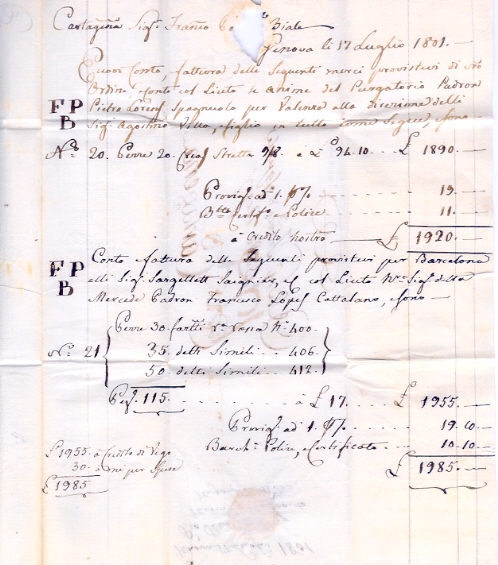 Cartagena Sig.r Franco Biale
Genova li 17 Luglio 1801.
Conto, fattura delle Seguenti merci provistevi di
Ordine conto col Liuto le Anime del Purgatorio Padron
F P Pietro Spagnuolo per Valenza alla direzione delli
B Sig.i Agostino e figlio in tutto come Segue, sono
N.o 20. Pezze 20. Stretta 9/8. a £ 94.10 £ 1890.
Provig.e ad 1. p% 19.
e Polize 11.
a Credito nostro £ 1920.
F P Conto fattura delle Seguenti provistevi per Barcelona
B alli Sig.i col Liuto N.ra Sig.ra della
Mercede Padron Francesco Lopes Cattalano, sono
N.o 21 Pezze 30 rossa N.o 400.
35. detti Simili 406.
50 detti Simili 412.
115. a £ 17. £ 1955.
Provig.e ad 1. p% 19.10
Polize, e Certificato 10.10
£ 1985.
£ 1955 a Credito di Vigo
30. a me per Spese
£ 1985